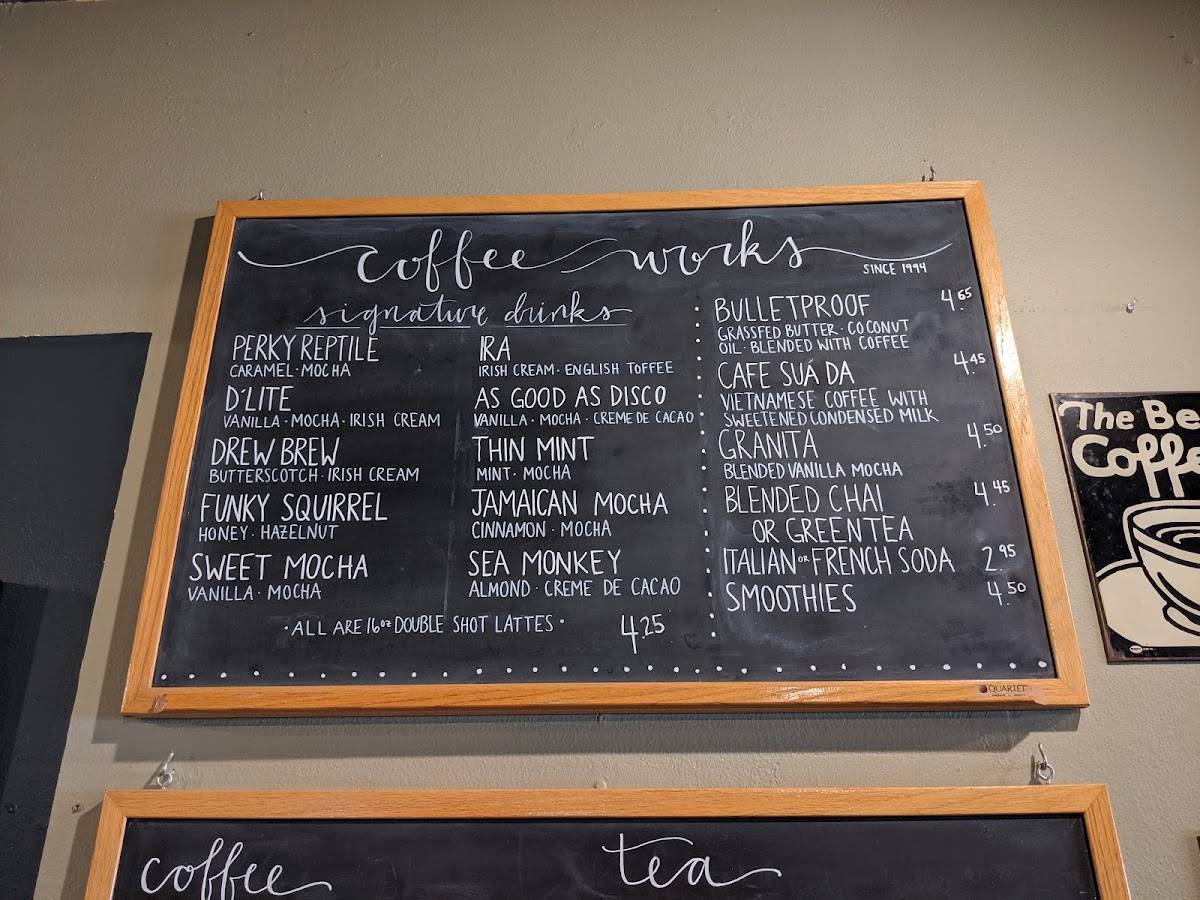 coffee works
SINCE 1994
signature drinks
PERKY REPTILE
CARAMEL · MOCHA
D'LITE
VANILLA · MOCHA · IRISH CREAM
DREW BREW
BUTTERSCOTCH · IRISH CREAM
FUNKY SQUIRREL
HONEY · HAZELNUT
SWEET MOCHA
VANILLA · MOCHA
IRA
IRISH CREAM · ENGLISH TOFFEE
AS GOOD AS DISCO
VANILLA · MOCHA · CREME DE CACAO
THIN MINT
MINT · MOCHA
JAMAICAN MOCHA
CINNAMON · MOCHA
SEA MONKEY
ALMOND · CREME DE CACAO
· ALL ARE 16oz DOUBLE SHOT LATTES · 4.25
BULLETPROOF 4.65
GRASSFED BUTTER · COCONUT
OIL · BLENDED WITH COFFEE
CAFE SUÁ DA 4.45
VIETNAMESE COFFEE WITH
SWEETENED CONDENSED MILK
GRANITA 4.50
BLENDED VANILLA MOCHA
BLENDED CHAI 4.45
OR GREEN TEA
ITALIAN OR FRENCH SODA 2.95
SMOOTHIES 4.50
QUARTET
The Be
Coffe
coffee
tea